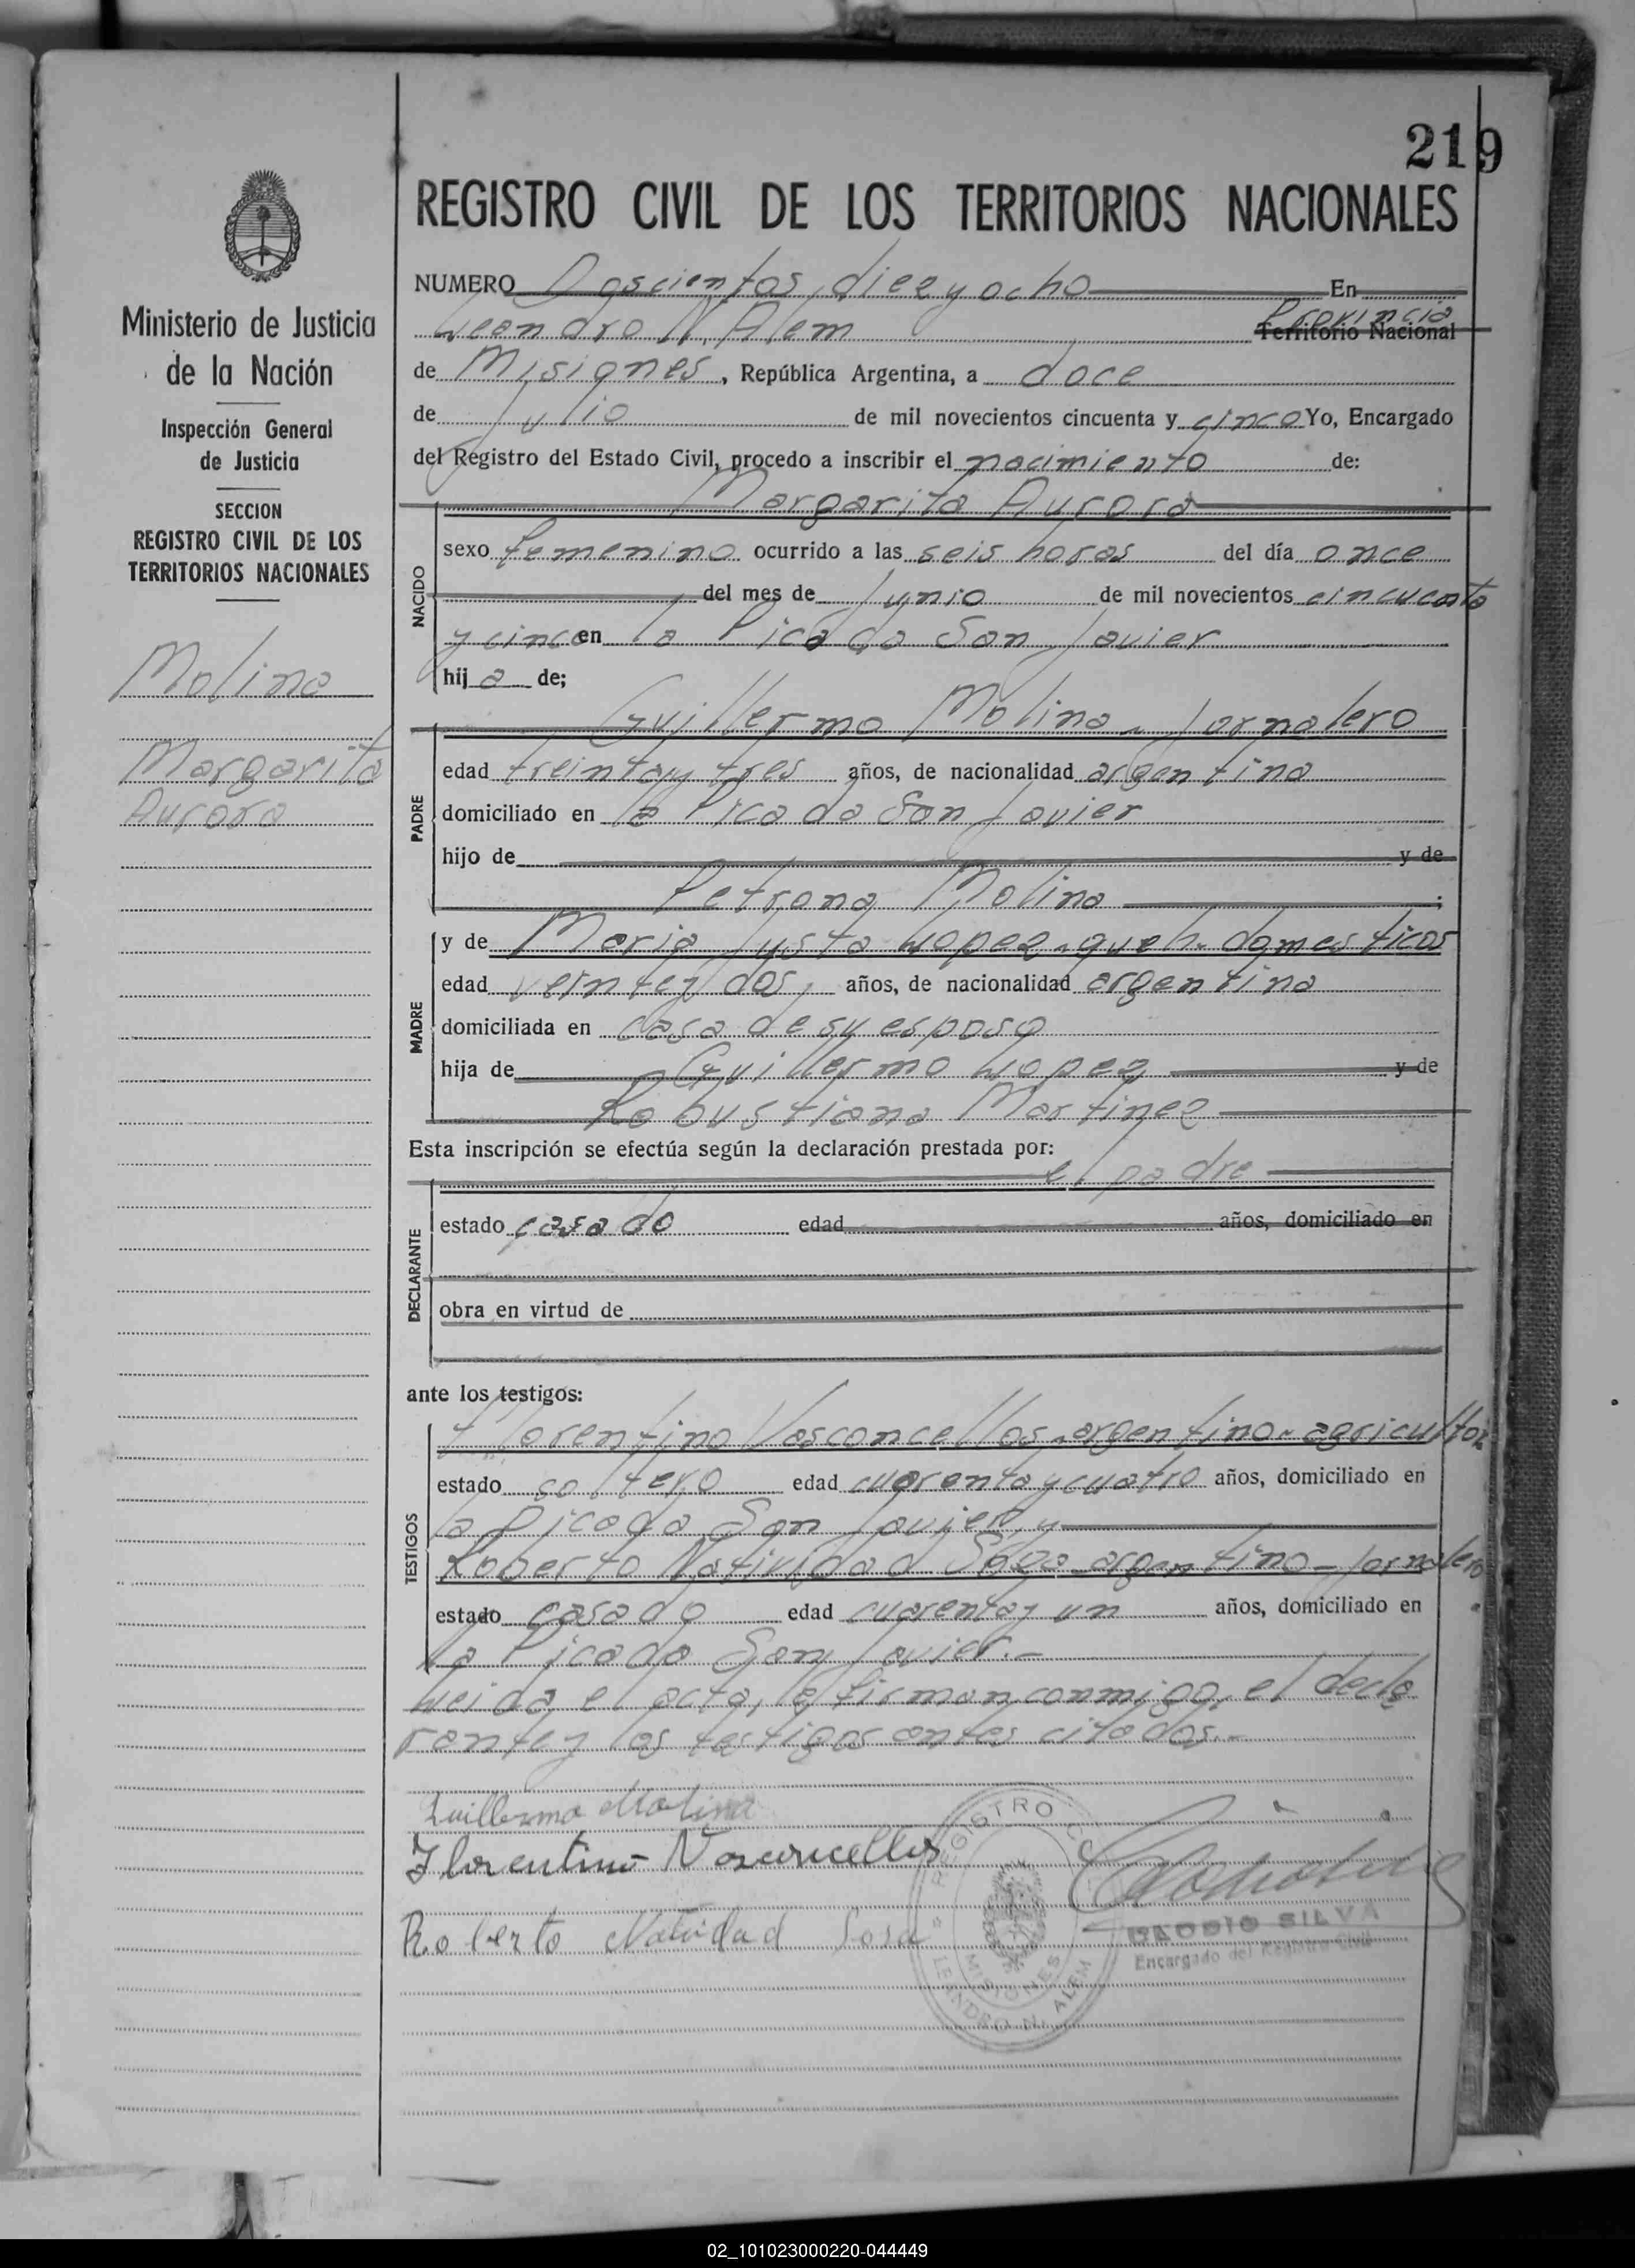 219
REGISTRO CIVIL DE LOS TERRITORIOS NACIONALES
Ministerio de Justicia
de la Nación
Inspección General
de Justicia
SECCION
REGISTRO CIVIL DE LOS
TERRITORIOS NACIONALES
Molina
Margarita
Aurora
NUMERO Doscientos diez y ocho En
Leandro N. Alem Provincia Territorio Nacional
de Misiones, República Argentina, a doce
de Julio de mil novecientos cincuenta y cinco Yo, Encargado
del Registro del Estado Civil, procedo a inscribir el nacimiento de:
Margarita Aurora
NACIDO
sexo femenino ocurrido a las seis horas del día once
del mes de Junio de mil novecientos cincuenta
y cinco en la Picada San Javier
hij a de;
Guillermo Molina - Jornalero
PADRE
edad treinta y tres años, de nacionalidad argentina
domiciliado en la Picada San Javier
hijo de y de
Petrona Molina ;
MADRE
y de Maria Justa Lopez - queh. domesticos
edad veinte y dos, años, de nacionalidad argentina
domiciliada en casa de su esposo
hija de Guillermo Lopez y de
Robustiana Martinez
Esta inscripción se efectúa según la declaración prestada por:
el padre
DECLARANTE
estado casado edad años, domiciliado en
obra en virtud de
ante los testigos:
TESTIGOS
Florentino Vasconcellos - argentino - agricultor
estado soltero edad cuarenta y cuatro años, domiciliado en
la Picada San Javier, y
Roberto Natividad Sosa argentino - Jornalero
estado casado edad cuarenta y un años, domiciliado en
la Picada San Javier.-
Leida el acta, la firman conmigo, el decla
rante y los testigos antes citados.-
Guillermo Molina
Florentino Vasconcellos
Roberto Natividad Sosa
REGISTRO CIVIL
MISIONES
LEANDRO N. ALEM
CLODIO SILVA
Encargado del Registro Civil
02_101023000220-044449